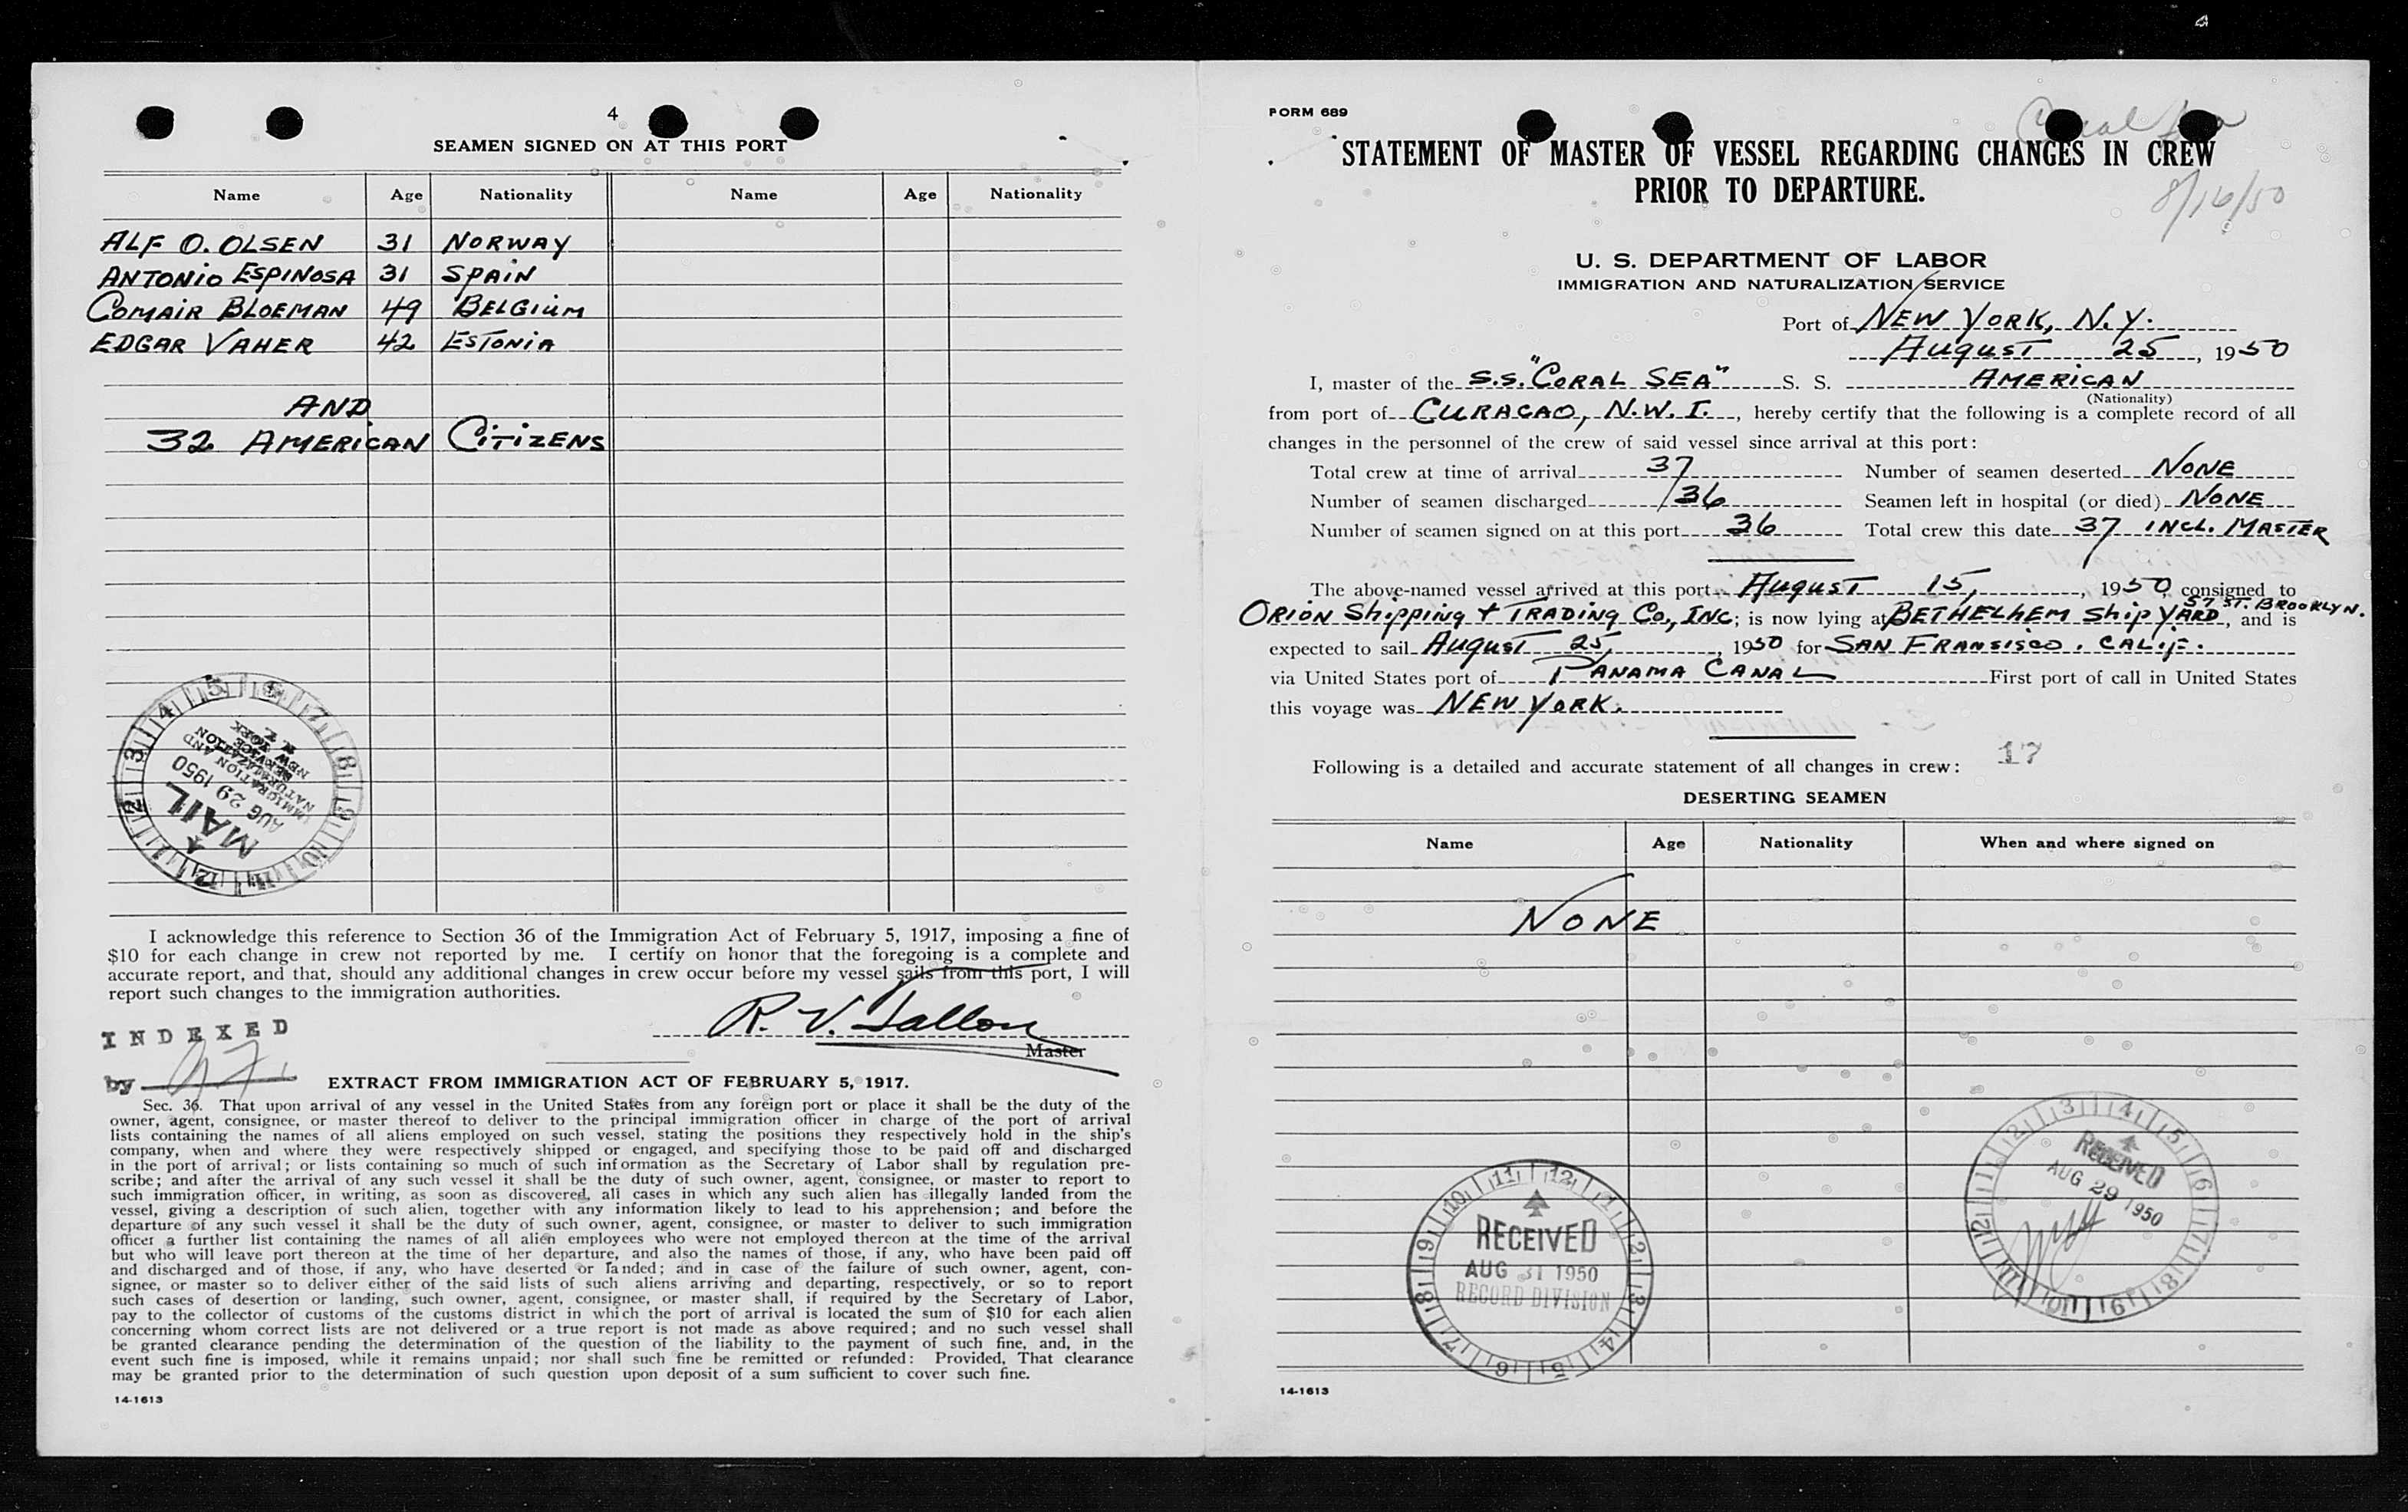 4
SEAMEN SIGNED ON AT THIS PORT
Name Age Nationality Name Age Nationality
ALF O. OLSEN 31 NORWAY
ANTONIO ESPINOSA 31 SPAIN
COMAIR BLOEMAN 49 BELGIUM
EDGAR VAHER 42 ESTONIA
AND
32 AMERICAN CITIZENS
MAIL
AUG 29 1950
IMMIGRATION AND
NATURALIZATION
SERVICE
NEW YORK
I acknowledge this reference to Section 36 of the Immigration Act of February 5, 1917, imposing a fine of
$10 for each change in crew not reported by me. I certify on honor that the foregoing is a complete and
accurate report, and that, should any additional changes in crew occur before my vessel sails from this port, I will
report such changes to the immigration authorities.
R. V. Fallon
Master
INDEXED
by
EXTRACT FROM IMMIGRATION ACT OF FEBRUARY 5, 1917.
Sec. 36. That upon arrival of any vessel in the United States from any foreign port or place it shall be the duty of the
owner, agent, consignee, or master thereof to deliver to the principal immigration officer in charge of the port of arrival
lists containing the names of all aliens employed on such vessel, stating the positions they respectively hold in the ship's
company, when and where they were respectively shipped or engaged, and specifying those to be paid off and discharged
in the port of arrival; or lists containing so much of such information as the Secretary of Labor shall by regulation pre-
scribe; and after the arrival of any such vessel it shall be the duty of such owner, agent, consignee, or master to report to
such immigration officer, in writing, as soon as discovered, all cases in which any such alien has illegally landed from the
vessel, giving a description of such alien, together with any information likely to lead to his apprehension; and before the
departure of any such vessel it shall be the duty of such owner, agent, consignee, or master to deliver to such immigration
officer a further list containing the names of all alien employees who were not employed thereon at the time of the arrival
but who will leave port thereon at the time of her departure, and also the names of those, if any, who have been paid off
and discharged and of those, if any, who have deserted or landed; and in case of the failure of such owner, agent, con-
signee, or master so to deliver either of the said lists of such aliens arriving and departing, respectively, or so to report
such cases of desertion or landing, such owner, agent, consignee, or master shall, if required by the Secretary of Labor,
pay to the collector of customs of the customs district in which the port of arrival is located the sum of $10 for each alien
concerning whom correct lists are not delivered or a true report is not made as above required; and no such vessel shall
be granted clearance pending the determination of the question of the liability to the payment of such fine, and, in the
event such fine is imposed, while it remains unpaid; nor shall such fine be remitted or refunded: Provided, That clearance
may be granted prior to the determination of such question upon deposit of a sum sufficient to cover such fine.
14-1613
FORM 689
STATEMENT OF MASTER OF VESSEL REGARDING CHANGES IN CREW
PRIOR TO DEPARTURE.
8/16/50
U. S. DEPARTMENT OF LABOR
IMMIGRATION AND NATURALIZATION SERVICE
Port of NEW YORK, N.Y.
AUGUST 25, 1950
I, master of the S.S. "CORAL SEA" S. S. AMERICAN
(Nationality)
from port of CURACAO, N.W.I., hereby certify that the following is a complete record of all
changes in the personnel of the crew of said vessel since arrival at this port:
Total crew at time of arrival 37 Number of seamen deserted NONE
Number of seamen discharged 36 Seamen left in hospital (or died) NONE
Number of seamen signed on at this port 36 Total crew this date 37 INCL. MASTER
The above-named vessel arrived at this port AUGUST 15, 1950, consigned to
ORION SHIPPING & TRADING CO., INC; is now lying at BETHELHEM SHIP YARD 57 ST. BROOKLYN., and is
expected to sail AUGUST 25, 1950 for SAN FRANSISCO, CALIF.
via United States port of PANAMA CANAL First port of call in United States
this voyage was NEW YORK.
17
Following is a detailed and accurate statement of all changes in crew:
DESERTING SEAMEN
Name Age Nationality When and where signed on
NONE
RECEIVED
AUG 29 1950
RECEIVED
AUG 31 1950
RECORD DIVISION
14-1613